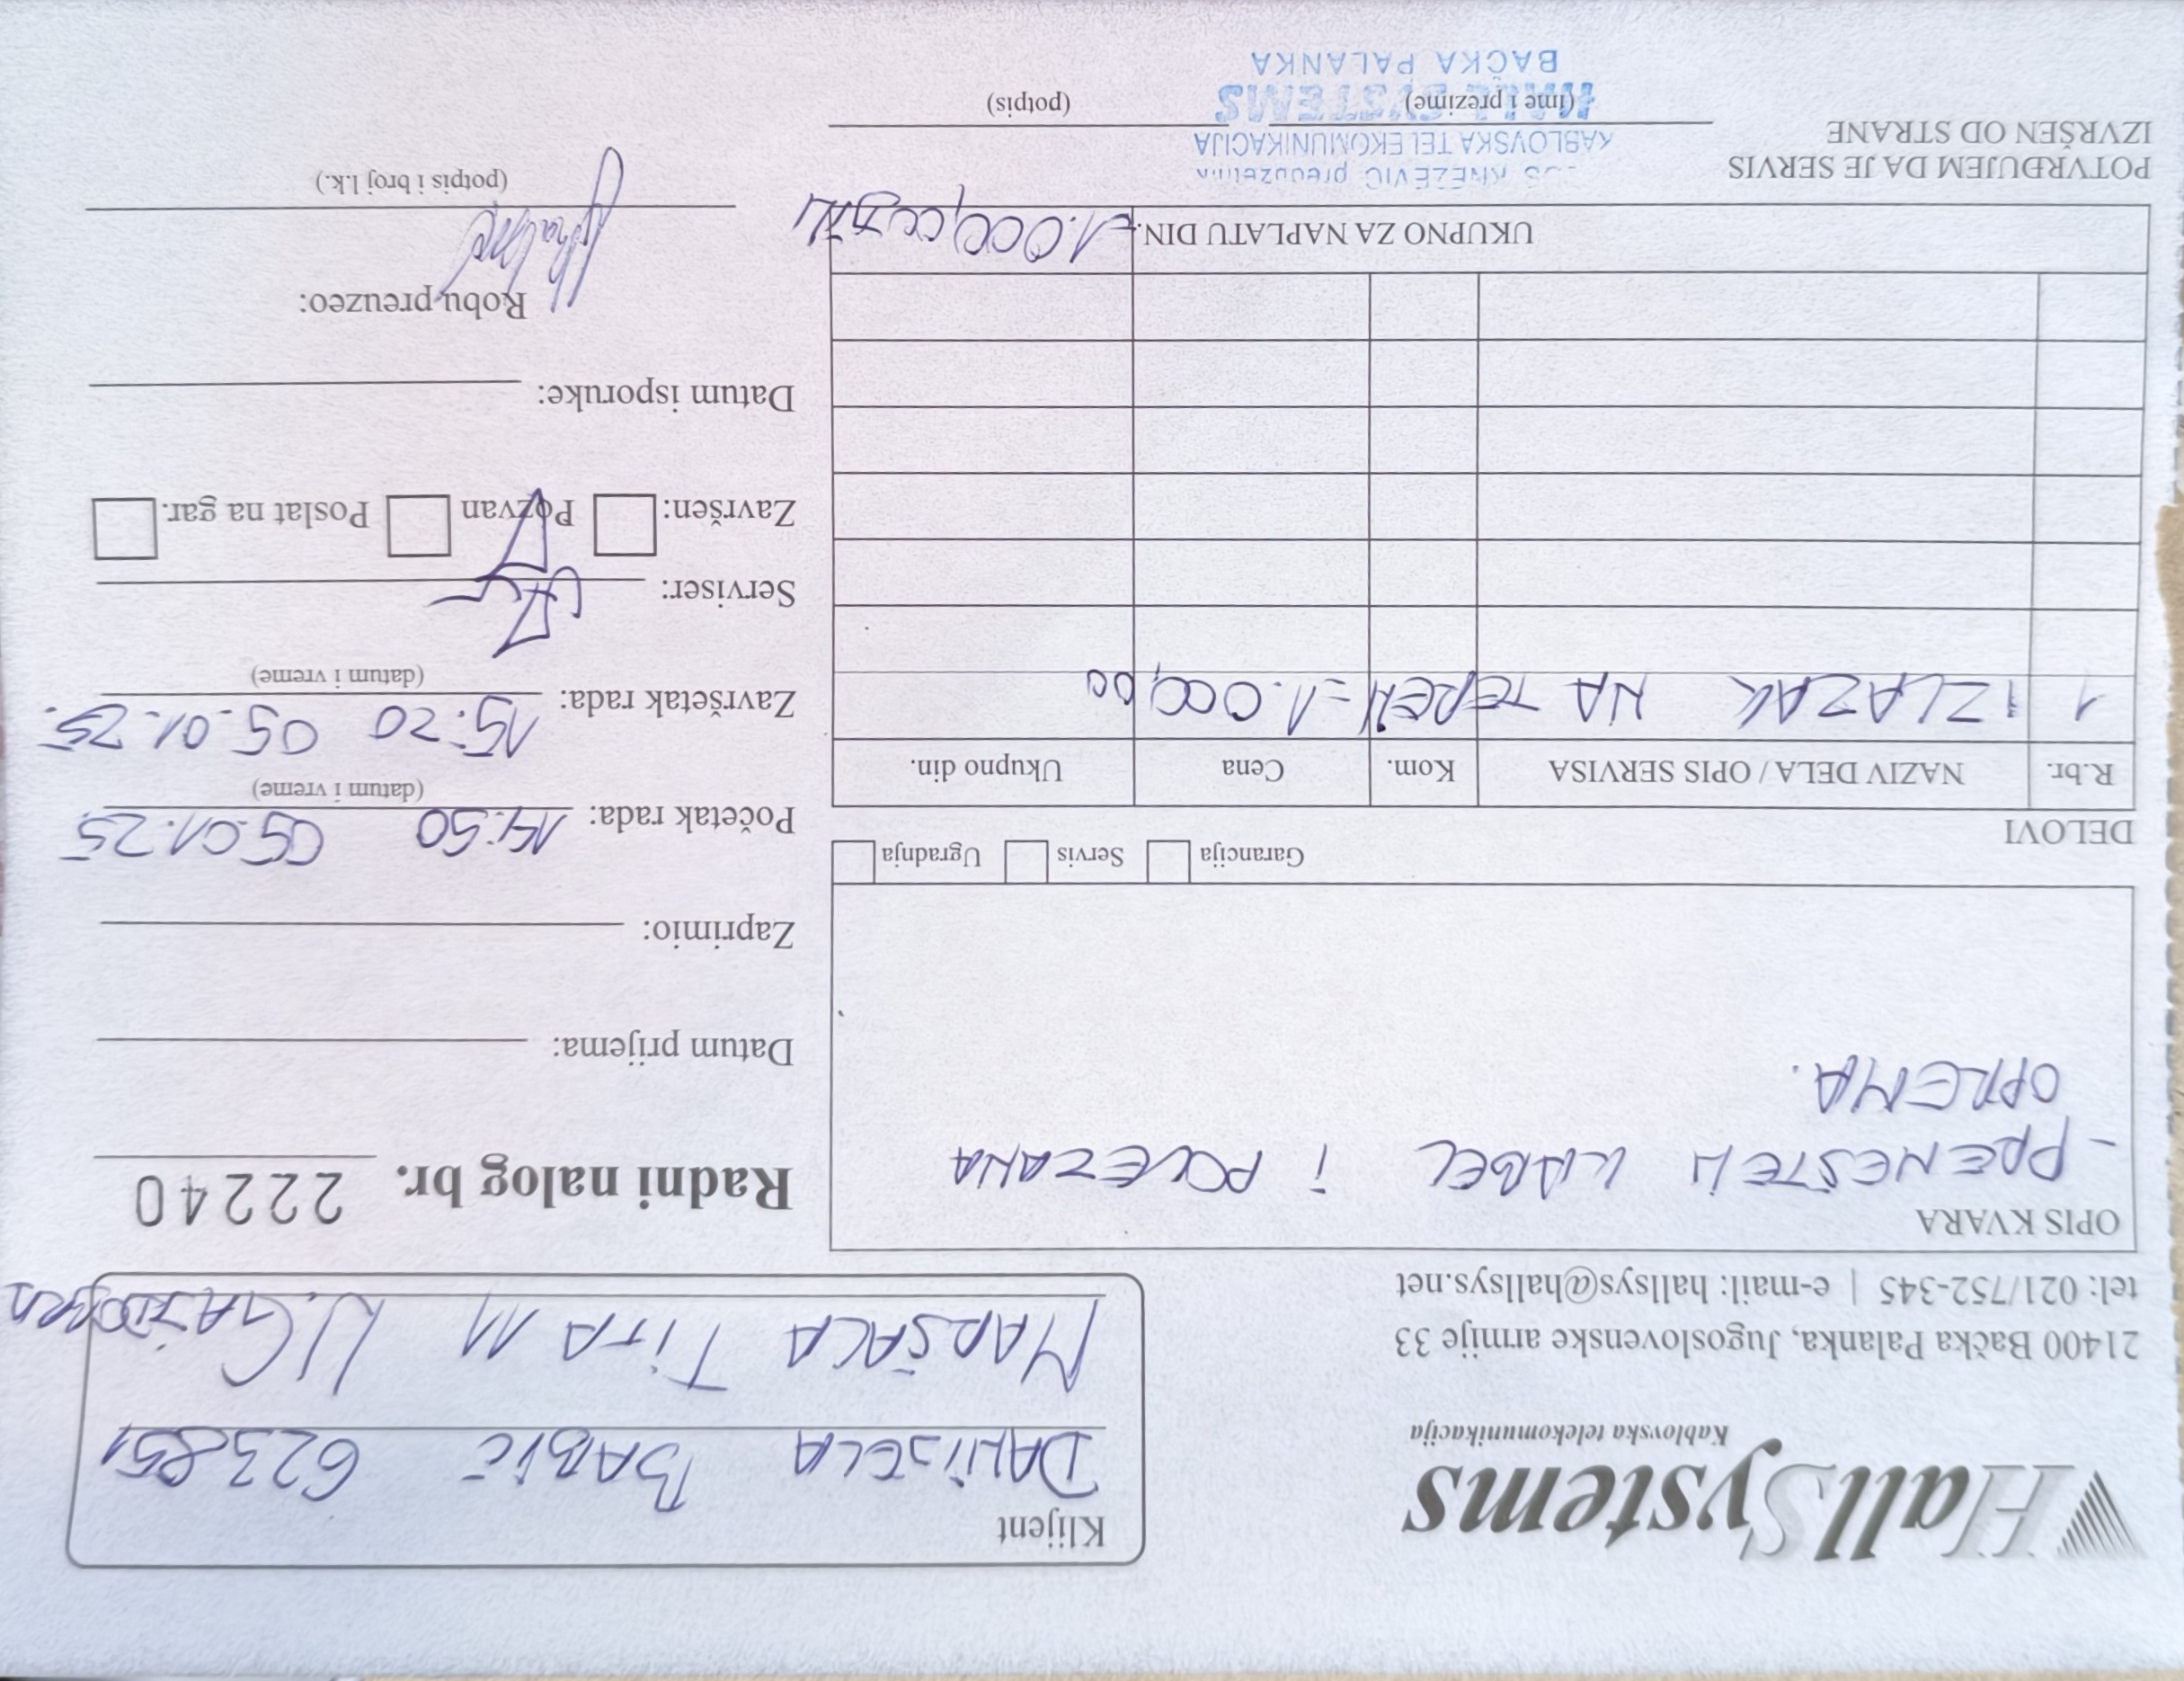 HallSystems
Kablovska telekomunikacija
21400 Bačka Palanka, Jugoslovenske armije 33
tel: 021/752-345 | e-mail: hallsys@hallsys.net
Klijent
DANIJELA BABIĆ 623851
MARŠALA TITA 11 N. GAJDOBRA
OPIS KVARA
- PRENEŠTEN KABEL i POVEZANA
OPREMA.
Garancija Servis Ugradnja
Radni nalog br. 22240
Datum prijema:
Zaprimio:
Početak rada: 14:50 05.01.25
(datum i vreme)
Završetak rada: 15:20 05.01.25.
(datum i vreme)
Serviser:
Završen: Pozvan Poslat na gar.
Datum isporuke:
Robu preuzeo:
(potpis i broj l.k.)
DELOVI
R.br. NAZIV DELA / OPIS SERVISA Kom. Cena Ukupno din.
1 IZLAZAK NA TEREN =1.000,00
UKUPNO ZA NAPLATU DIN. =1.000,00 DIN
POTVRĐUJEM DA JE SERVIS
IZVRŠEN OD STRANE
(ime i prezime) (potpis)
KNEŽEVIĆ preduzetnik
KABLOVSKA TELEKOMUNIKACIJA
HALL SYSTEMS
BAČKA PALANKA